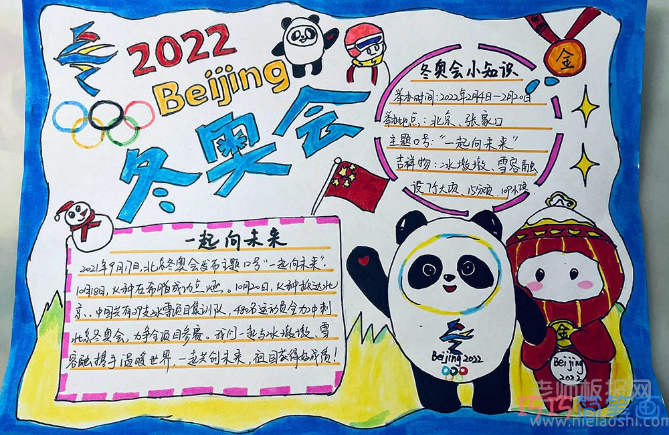 2022
Beijing
冬奥会
冬奥会小知识
举办时间:2022年2月4日-2月20日
举办地点:北京、张家口
主题口号:"一起向未来"
吉祥物:冰墩墩、雪容融
设7个大项,15分项,109小项
一起向未来
2021年9月17日,北京冬奥会发布主题口号"一起向未来".
10月18日,火种在希腊成功点燃。10月20日,火种抵达北
京、中国共有
支冰雪项目集训队,480名运动员全力冲刺
北京冬奥会,力争全项目参赛。我们一起与冰墩墩、雪
容融携手温暖世界,一起共创未来,祖国
!
金
Beijing 2022
金
Beijing
2022
老师板报网
www.hielaoshi.com